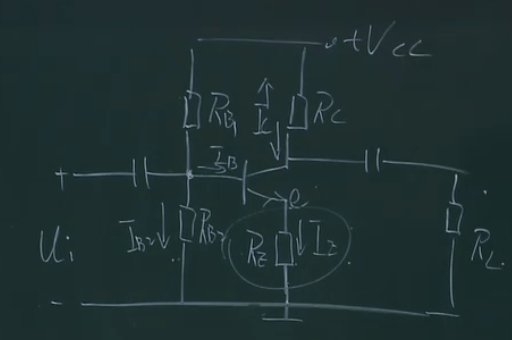 +Vcc
RB1
Ic
Rc
IB
+
e
Ui
IB2
RB2
RE
IE
RL
-